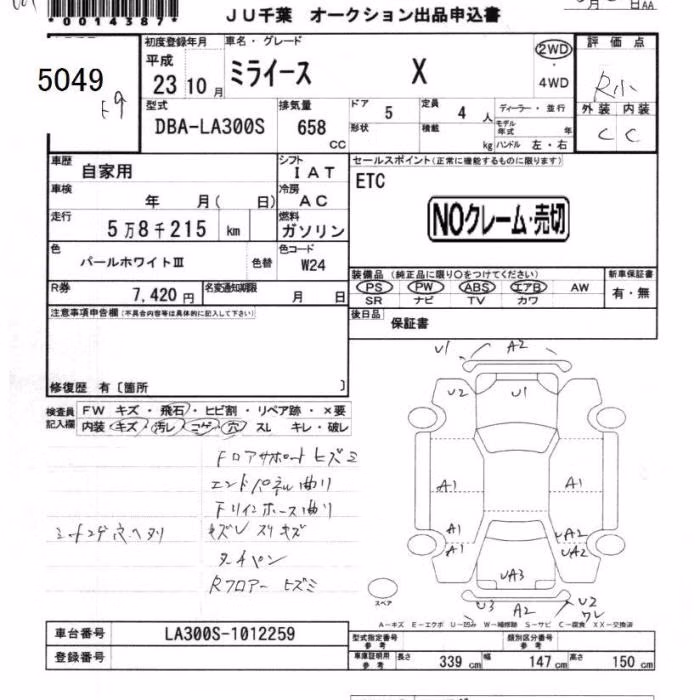 *0014387*
JU千葉 オークション出品申込書
月 日AA
5049
F9
初度登録年月
平成
23 10 月
車名・グレード
ミライース X
2WD
・
4WD
評価点
R小
外装 内装
C C
型式
DBA-LA300S
排気量
658
CC
ドア
5
定員
4 人
形状
積載
kg
ディーラー・並行
モデル年式 年
ハンドル 左・右
車歴
自家用
シフト
IAT
車検
年 月( 日)
冷房
AC
走行
5万8千215 km
燃料
ガソリン
色
パールホワイトⅢ
色替
色コード
W24
R券
7,420 円
名変通知期限
月 日
セールスポイント(正常に機能するものに限ります)
ETC
NOクレーム・売切
装備品 (純正品に限り○をつけてください)
PS PW ABS エアB AW
SR ナビ TV カワ
新車保証書
有・無
後日品
保証書
注意事項申告欄(不具合内容等は具体的に記入して下さい)
修復歴 有〔箇所 〕
検査員
記入欄
FW キズ・飛石・ヒビ割・リペア跡・×要
内装 キズ・汚レ・コゲ・穴・スレ キレ・破レ
Fロアサポートヒズミ
エンドパネル曲り
Fリインホース曲り
シートコゲ穴ヘタリ
キズUスリキズ
タッチペン
Rフロアー ヒズミ
U1 A2
U2 U1
A1 A1
A1
A1
UA2
UA2
UA3
U3 A2 U2
ワレ
スペア
A―キズ E―エクボ U―凹み W―補修跡 S―サビ C―腐食 XX―交換済
車台番号
LA300S-1012259
登録番号
型式指定番号
参考
類別区分番号
参考
車庫証明用
参考
長さ 339 cm 幅 147 cm 高さ 150 cm